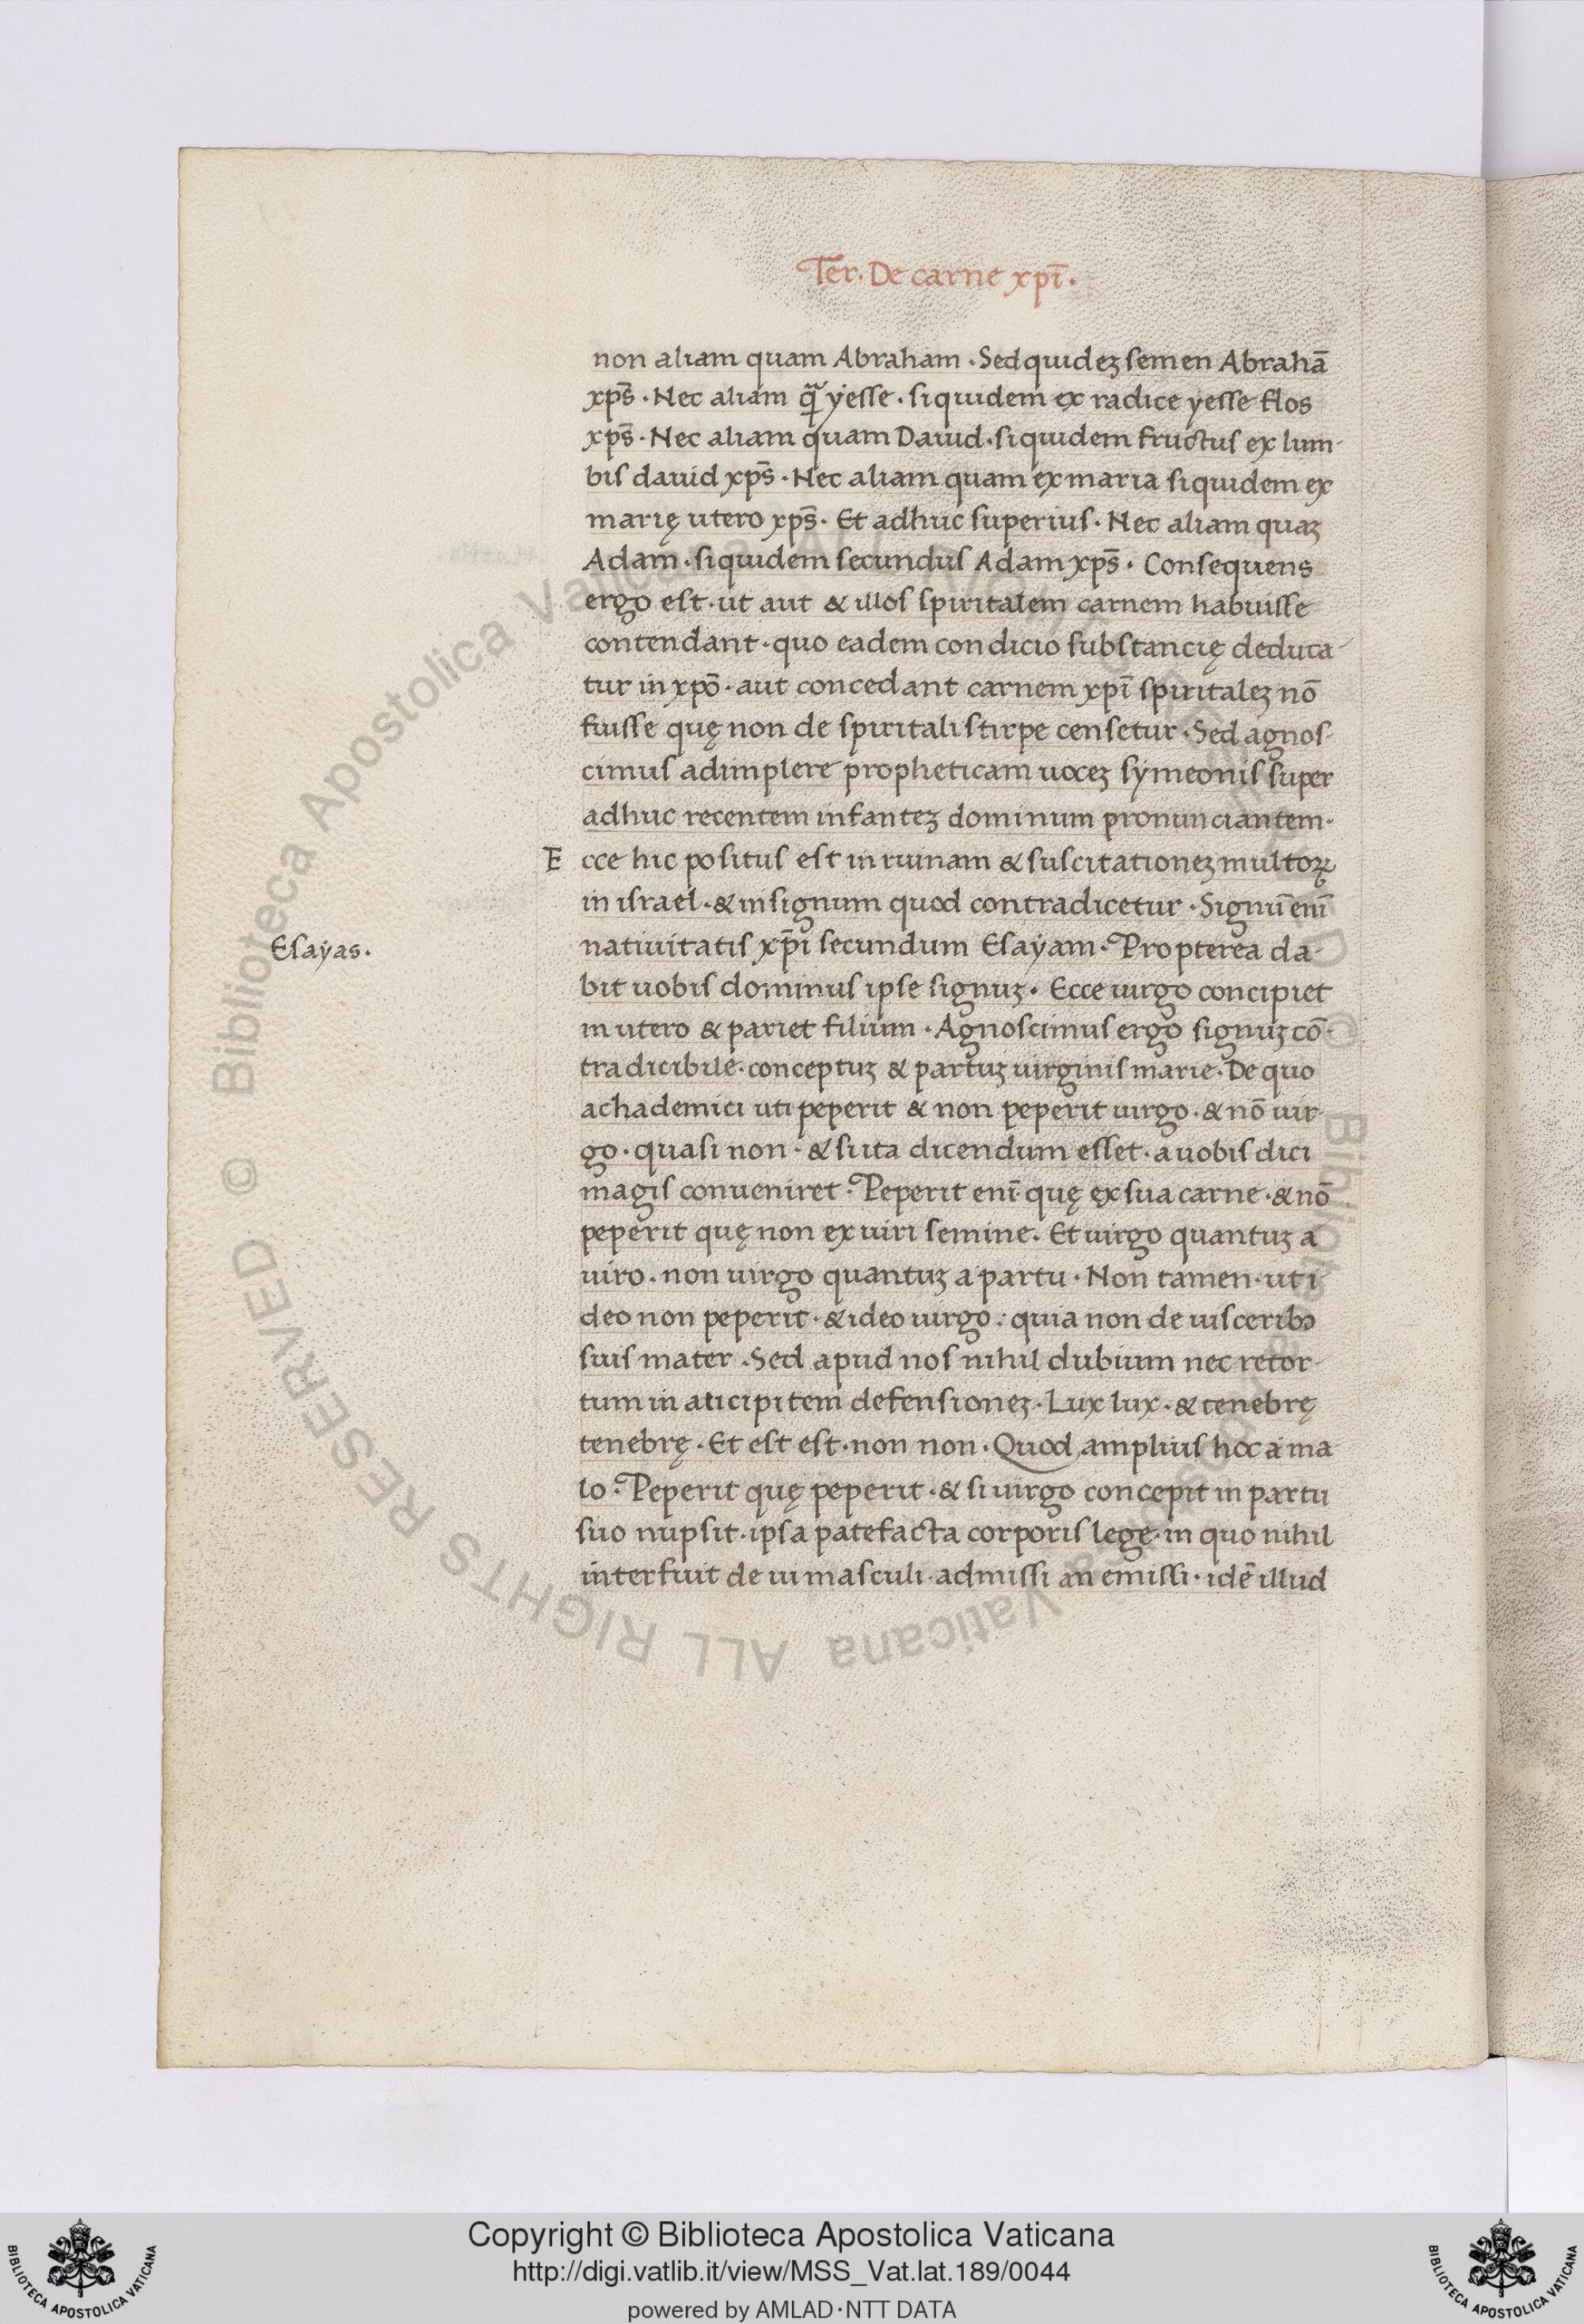 Ter. De carne xpī.
non aliam quam Abraham. Sed quideꝫ semen Abrahā
xp̄s. Nec aliam qͣ̄ yesse. siquidem ex radice yesse flos
xp̄s. Nec aliam quam Dauid. siquidem fructus ex lum-
bis dauid xp̄s. Nec aliam quam ex maria siquidem ex
marię utero xp̄s. Et adhuc superius. Nec aliam quaꝫ
Adam. siquidem secundus Adam xp̄s. Consequens
ergo est. ut aut & illos spiritalem carnem habuisse
contendant. quo eadem condicio substancię deduca-
tur in xp̄o. aut concedant carnem xpī spiritaleꝫ nō
fuisse quę non de spiritali stirpe censetur. Sed agnos-
cimus adimplere propheticam uoceꝫ symeonis super
adhuc recentem infanteꝫ dominum pronunciantem.
Ecce hic positus est in ruinam & suscitationeꝫ multoꝝ
in israel. & in signum quod contradicetur. Signū enī
nativitatis xp̄i secundum Esayam. Propterea da-
Esayas.
bit uobis dominus ipse signuꝫ. Ecce uirgo concipiet
in utero & pariet filium. Agnoscimus ergo signuꝫ cō-
tradicibile. conceptuꝫ & partuꝫ uirginis marie. De quo
achademici uti peperit & non peperit uirgo. & nō uir-
go. quasi non. & si ita dicendum esset. a uobis dici
magis conueniret. Peperit enī quę ex sua carne. & nō
peperit quę non ex uiri semine. Et uirgo quantuꝫ a
uiro. non uirgo quantuꝫ a partu. Non tamen. ut i
deo non peperit. & ideo uirgo: quia non de uisceribꝰ
suis mater. Sed apud nos nihil dubium nec retor-
tum in ancipitem defensioneꝫ. Lux lux. & tenebrę
tenebrę. Et est est. non non. Quod amplius hoc a ma
lo. Peperit quę peperit. & si uirgo concepit in partu
suo nupsit. ipsa patefacta corporis lege. in quo nihil
interfuit de ui masculi. admissi an emissi. idē illud
Copyright © Biblioteca Apostolica Vaticana
http://digi.vatlib.it/view/MSS_Vat.lat.189/0044
powered by AMLAD·NTT DATA